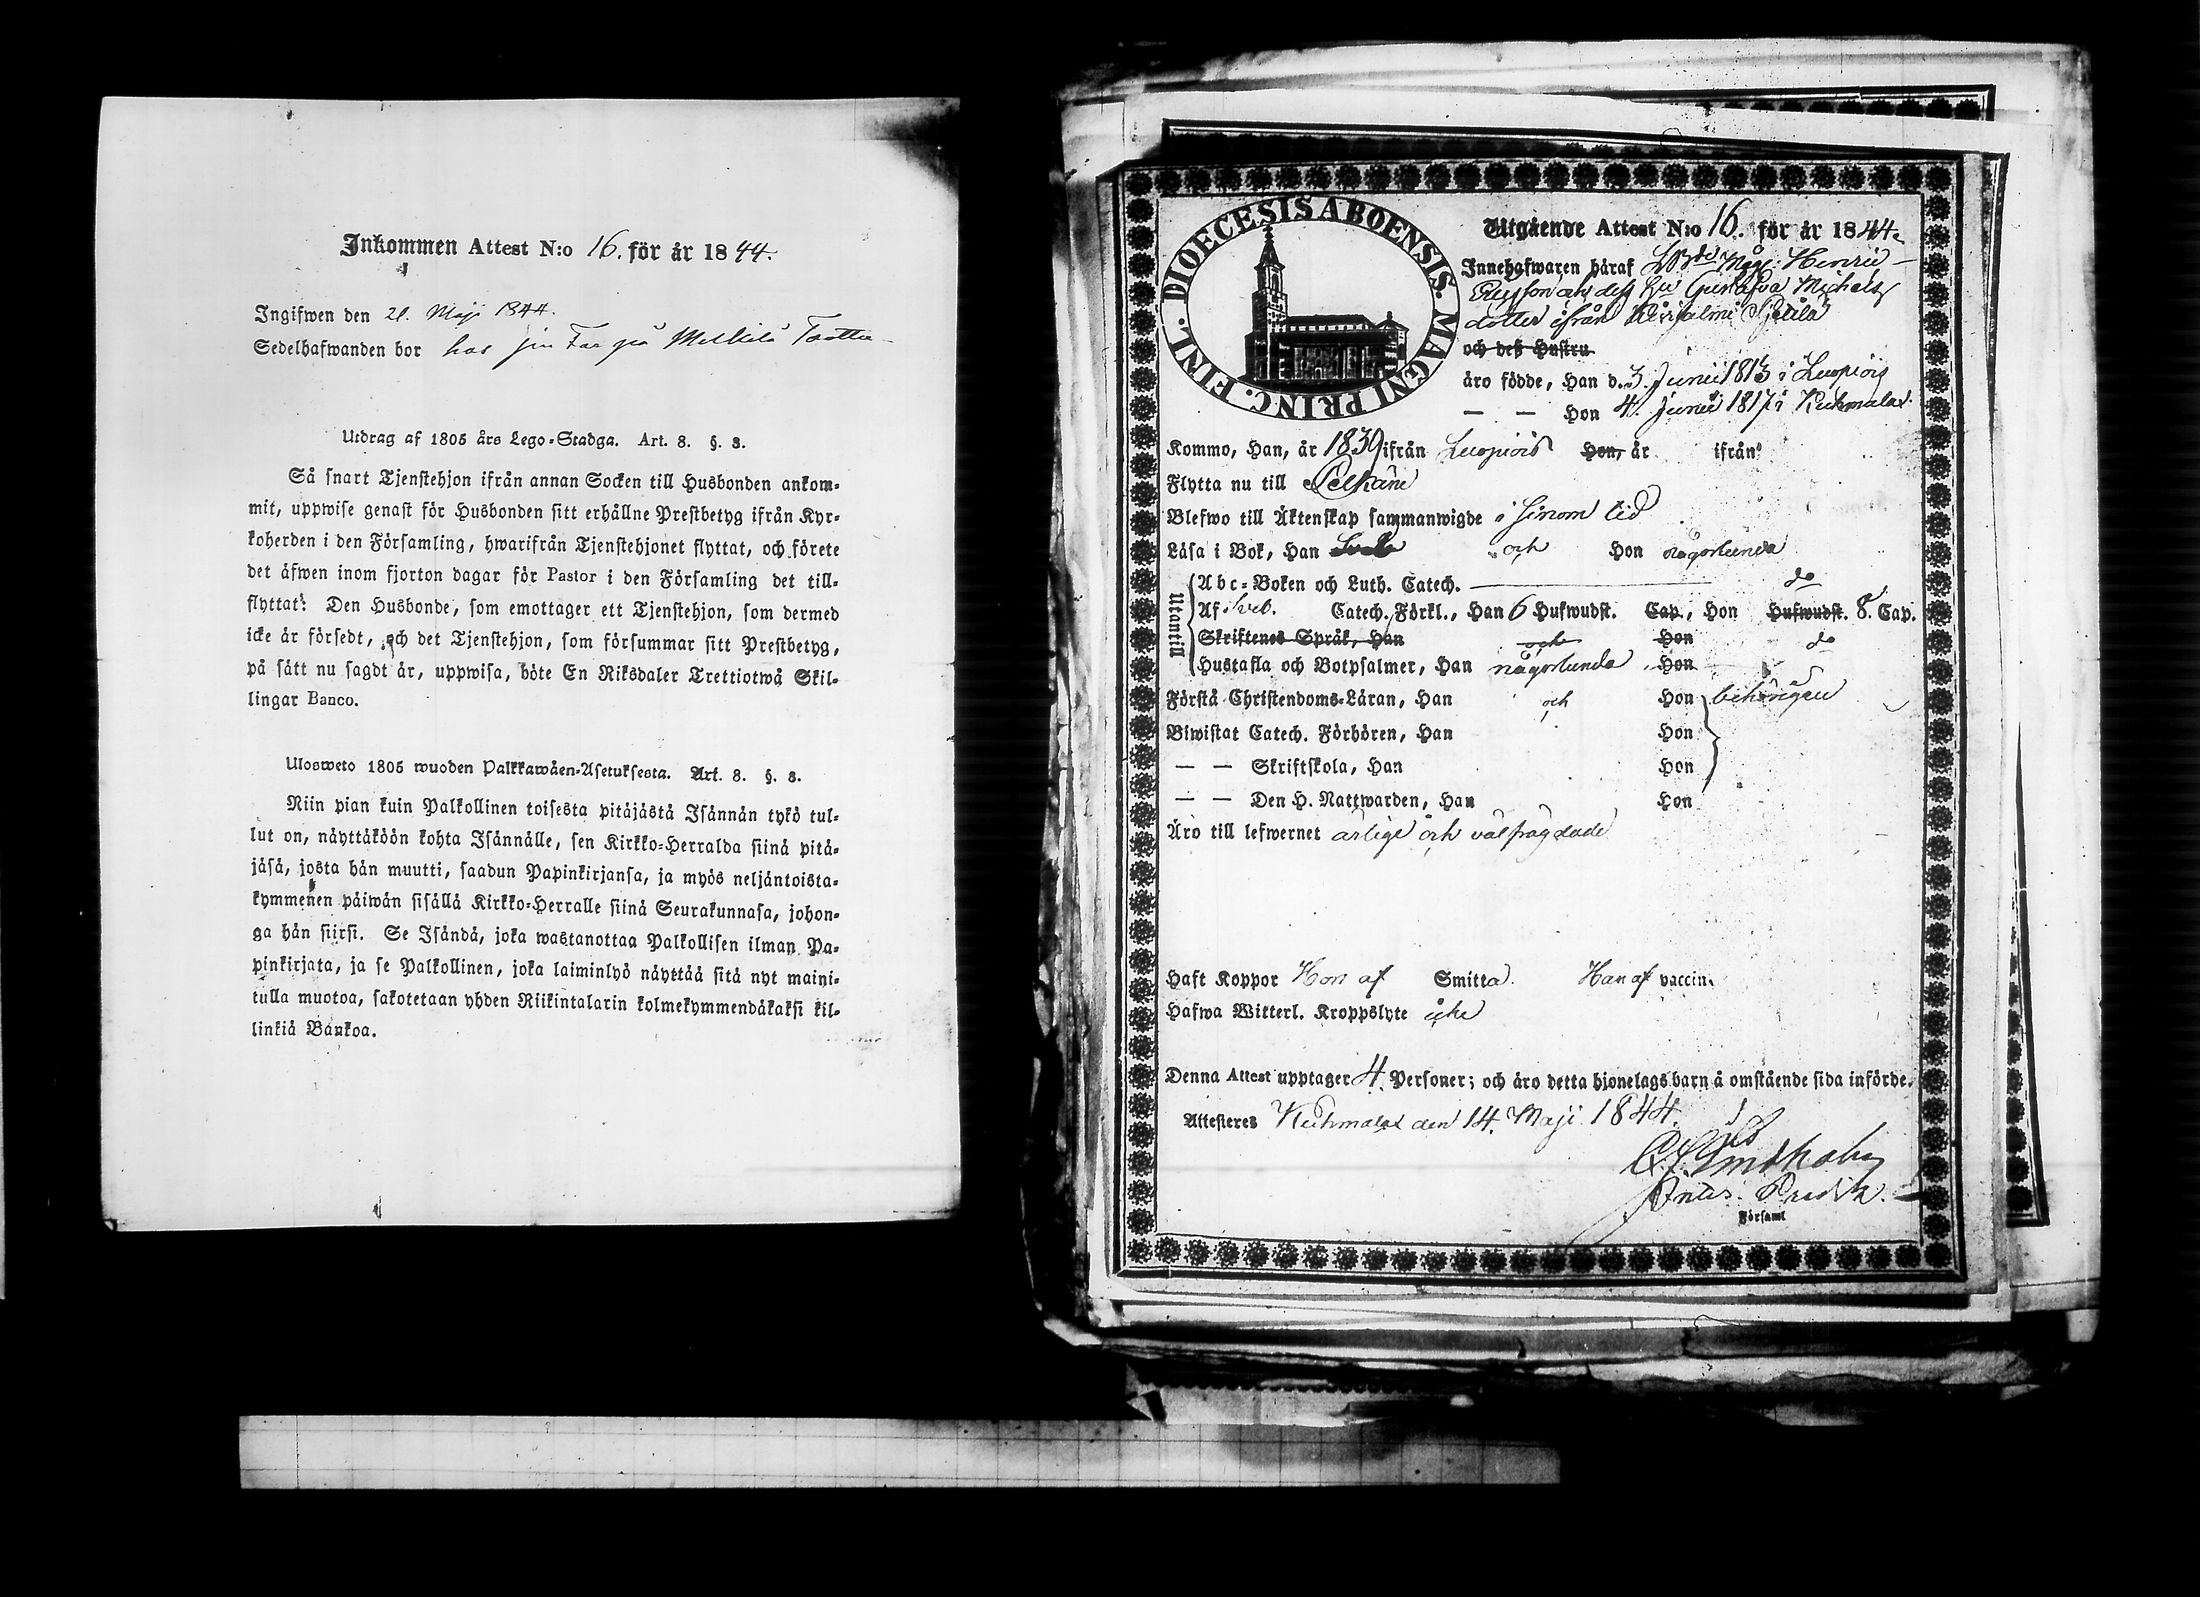 Inkommen Attest N:o 16. för år 1844.
Ingifwen den 21. Maji 1844.
Sedelhafwanden bor hos sin Far på Mekkilä
Utdrag af 1805 års Lego-Stadga. Art. 8. §. 8.
Så snart Tjenstehjon ifrån annan Socken till Husbonden ankom-
mit, uppwise genast för Husbonden sitt erhållne Prestbetyg ifrån Kyr-
koherden i den Församling, hwarifrån Tjenstehjonet flyttat, och förete
det äfwen inom fjorton dagar för Pastor i den Församling det till-
flyttat: Den Husbonde, som emottager ett Tjenstehjon, som dermed
icke är försedt, och det Tjenstehjon, som försummar sitt Prestbetyg,
på sätt nu sagdt är, uppwisa, böte En Riksdaler Trettiotwå Skil-
lingar Banco.
Ulosweto 1805 wuoden Palkkawäen-Asetuksesta. Art. 8. §. 8.
Niin pian kuin Palkollinen toisesta pitäjästä Isännän tykö tul-
lut on, näyttäköön kohta Isännälle, sen Kirkko-Herralda siinä pitä-
jäsä, josta hän muutti, saadun Papinkirjansa, ja myös neljäntoista-
kymmenen päiwän sisällä Kirkko-Herralle siinä Seurakunnasa, johon-
ga hän siirsi. Se Isändä, joka wastanottaa Palkollisen ilman Pa-
pinkirjata, ja se Palkollinen, joka laiminlyö näyttää sitä nyt maini-
tulla muotoa, sakotetaan yhden Riikintalarin kolmekymmendäkaksi kil-
linkiä Bankoa.
DIOECESIS ABOENSIS. MAGNI PRINC. FINL.
Utgående Attest N:o 16. för år 1844.
Innehafwaren häraf Måg. Henric
Ericsson och dess Hu Gustafva Michels
dotter ifrån
och deß Hustru
äro födde, Han d. 3. Junii 1813 i Luopiois
— — Hon 4. Junii 1817 i Kuhmalax
Kommo, Han, år 1839 ifrån Luopiois Hon, år ifrån
Flytta nu till Pelkäne
Blefwo till Äktenskap sammanwigde i sinom tid
Läsa i Bok, Han och Hon någorlunda
Utantill
Abc-Boken och Luth. Catech. do
Af Sveb. Catech. Förkl., Han 6 Hufwudst. Cap., Hon Hufwudst. 8. Cap.
Skriftenes Språk, Han och Hon do
Hustafla och Botpsalmer, Han någorlunda Hon
Förstå Christendoms-Läran, Han och Hon behörigen
Biwistat Catech. Förhören, Han Hon
— — Skriftskola, Han Hon
— — Den H. Nattwarden, Han Hon
Äro till lefwernet ärlige och välfrägdade
Haft Koppor Hon af Smitta. Han af vaccin.
Hafwa Witterl. Kroppslyte icke
Denna Attest upptager 4. Personer; och äro detta hjonelags barn å omstående sida införde.
Attesteres Kuhmalax den 14. Maji 1844.
Församl